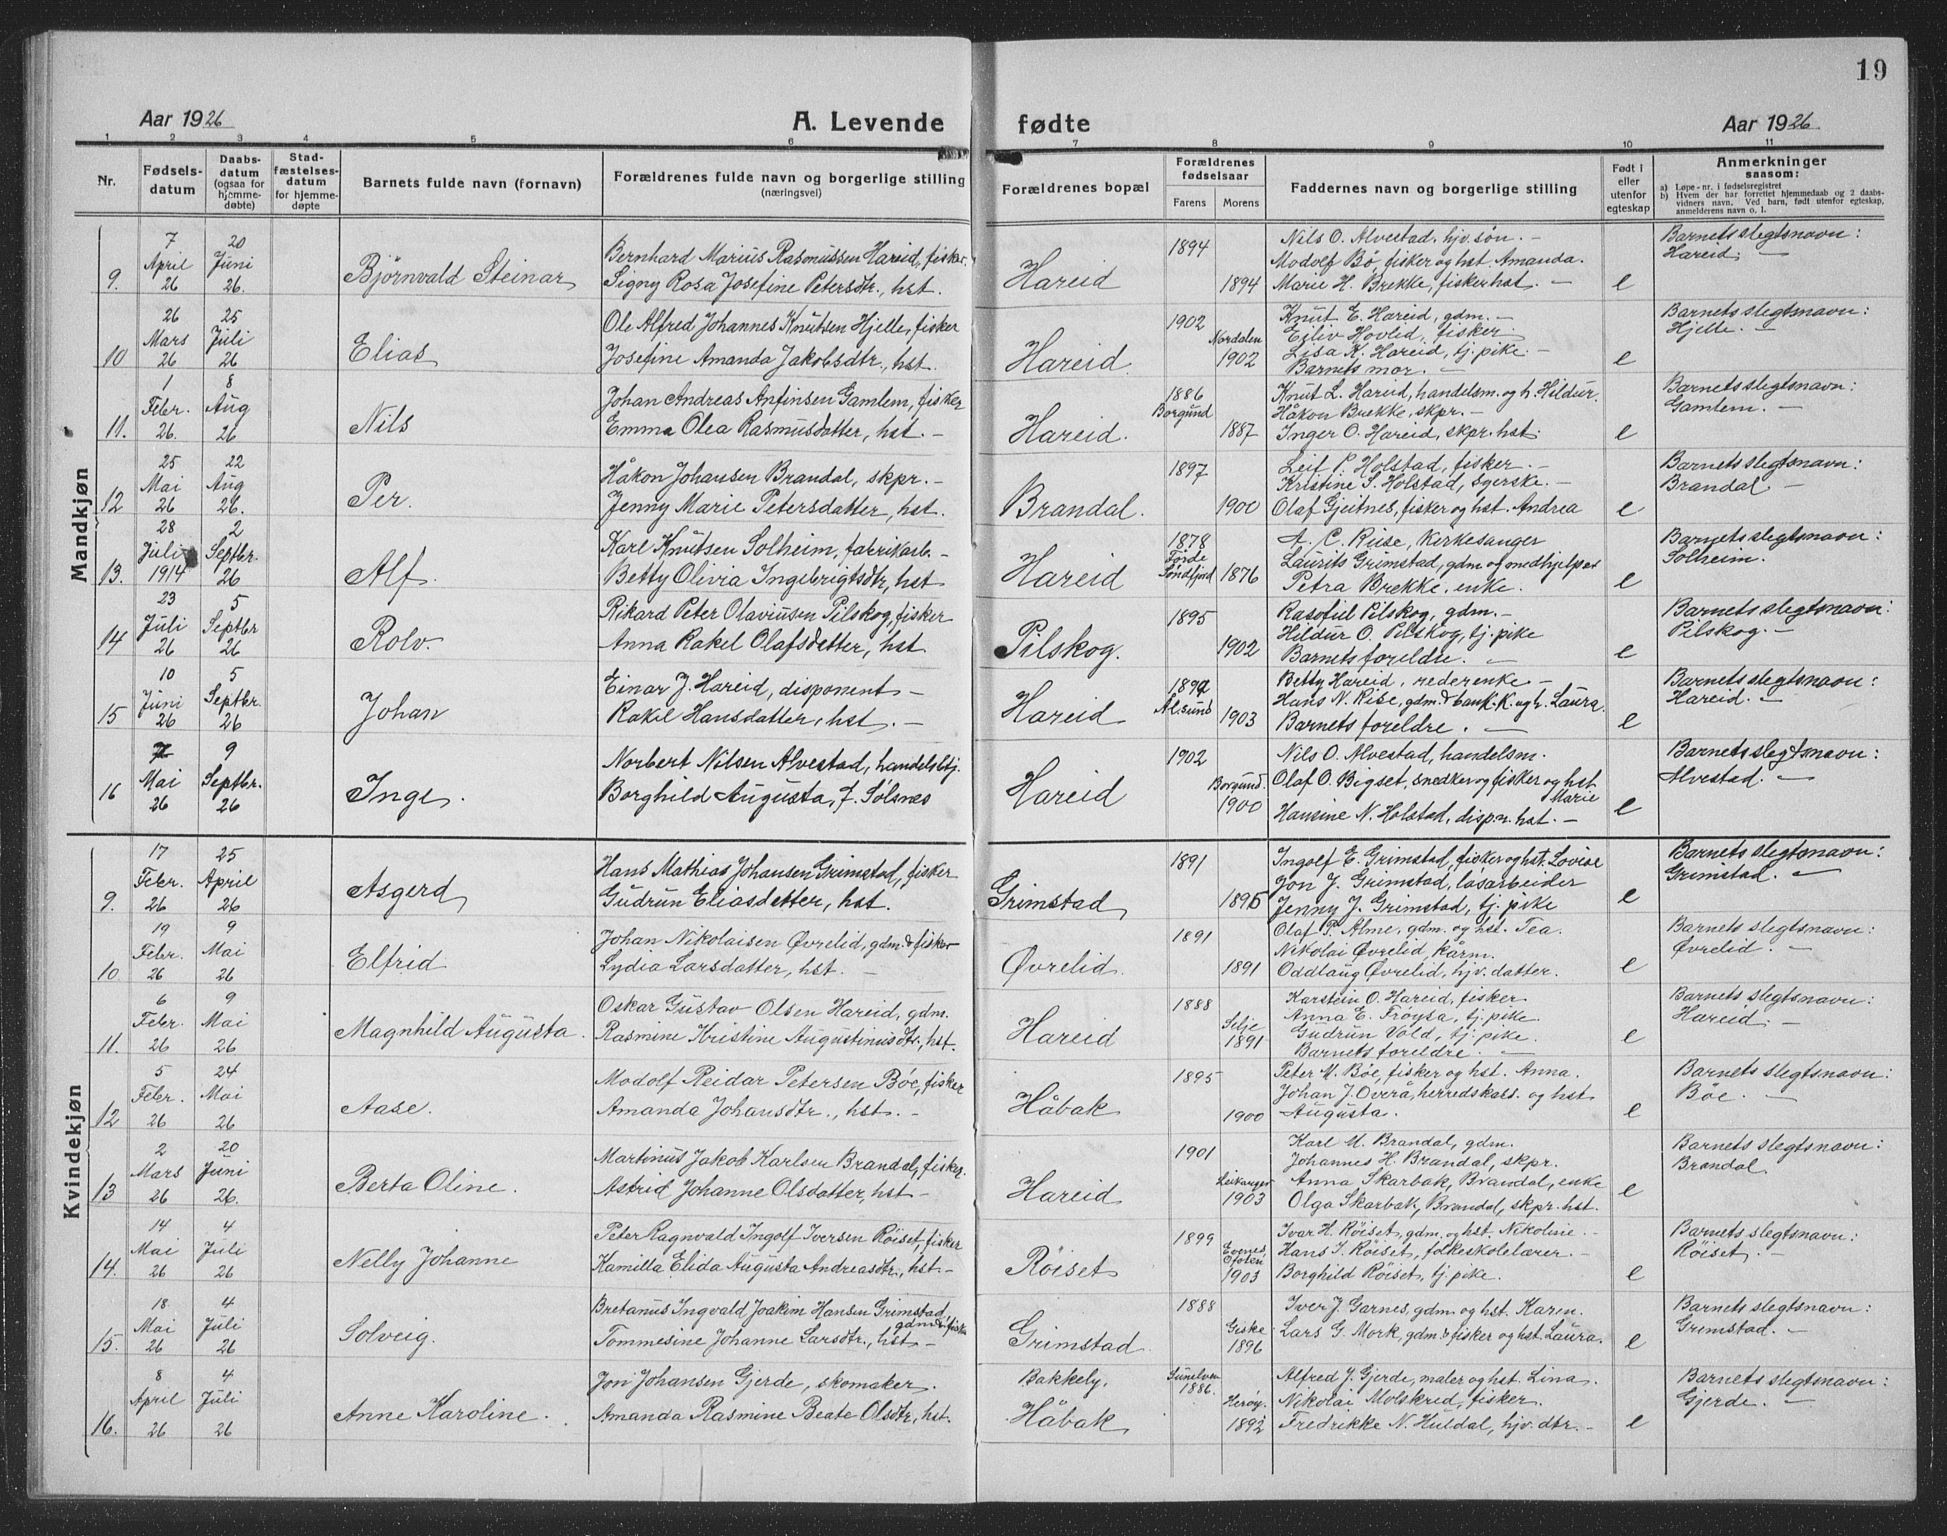 19
Aar 1926 A. Levende fødte Aar 1926
1 2 3 4 5 6 7 8 9 10 11
Nr. | Fødselsdatum | Daabsdatum (ogsaa for hjemmedøbte) | Stadfæstelsesdatum for hjemmedøpte | Barnets fulde navn (fornavn) | Forældrenes fulde navn og borgerlige stilling (næringsvei) | Forældrenes bopæl | Forældrenes fødselsaar Farens Morens | Faddernes navn og borgerlige stilling | Født i eller utenfor egteskap | Anmerkninger saasom: a) Løpe-nr. i fødselsregistret b) Hvem der har forrettet hjemmedaab og 2 daabsvidners navn. Ved barn, født utenfor egteskap, anmelderens navn o. l.
Mandkjøn
9. 7 April 26 20 Juni 26. Bjørnvald Steinar
Bernhard Marius Rasmussen Hareid, fisker.
Signy Rosa Josefine Petersdtr., hst.
Hareid 1894 1894
Nils O. Alvestad, hjv. søn. -
Modolf Bö, fisker og hst. Amanda.
Marie H. Brekke, fiskerhst. -
e
Barnets slegtsnavn:
Hareid. -
10 26 Mars 26 25 Juli 26 Elias
Ole Alfred Johannes Knutsen Hjelle, fisker
Josefine Amanda Jakobsdtr., hst.
Hareid. 1902 Nordalen 1902
Knut E. Hareid, gdm. -
Eiliv Hovlid, fisker.
Lisa K. Hareid, tj. pike. -
Barnets mor. -
e
Barnets slegtsnavn:
Hjelle. -
11. 1 Febr. 26. 8 Aug 26 Nils
Johan Andreas Anfinsen Gamlem, fisker
Emma Olea Rasmusdatter, hst. -
Hareid. 1886 Borgund 1887
Knut L. Hareid, handelsm. og h. Hildur.
Håkon Brekke, skpr. -
Inger O. Hareid, skpr. hst.
e
Barnets slegtsnavn:
Gamlem. -
12 25 Mai 26 22 Aug 26. Per.
Håkon Johansen Brandal, skpr. -
Jenny Marie Petersdatter, hst.
Brandal. 1897 1900
Leif P. Holstad, fisker. -
Kristine S. Holstad, syerske. -
Olaf Gjeitnes, fisker og hst. Andrea
e
Barnets slegtsnavn:
Brandal -
13. 28 Juli 1914 2 Septbr. 26 Alf.
Karl Knutsen Solheim, fabrikarb. -
Betty Olivia Ingebrigtsdtr, hst
Hareid 1878 Førde Søndfjord 1876
A. C. Riise, Kirkesanger
Laurits Grimstad, gdm of medhjelper
Petra Brekke, enke.
e
Barnets slegtsnavn:
Solheim. -
14 23 Juli 26 5 Septbr 26 Rolv.
Rikard Peter Olaviusen Pilskog, fisker
Anna Rakel Olafsdatter, hst
Pilskog. 1895 1902
Rasofiel Pilskog, gdm. -
Hildur O. Pilskog, tj. pike
Barnets foreldre. -
e
Barnets slegtsnavn:
Pilskog. -
15 10 Juni 26 5 Septbr. 26 Johan
Einar J. Hareid, disponent -
Rakel Hansdatter, hst. -
Hareid Al.sund 1903
Betty Hareid, rederenke -
Hans N. Riise, gdm. & bank. K. og h. Laura.
Barnets foreldre. -
e
Barnets slegtsnavn:
Hareid. -
16 Mai 26 9 Septbr. 26 Inge.
Norbert Nilsen Alvestad, handelsbtj.
Borghild Augusta, f. Solsnes
Hareid 1902 Borgund. 1900
Nils O. Alvestad, handelsm.
Olaf O. Bigset, snedker og fisker og hst Marie
Hansine N. Holstad, disp.n. hst. -
e
Barnets slegtsnavn:
Alvestad. -
Kvindekjøn
9. 17 Febr. 26 25 April 26 Asgerd
Hans Mathias Johansen Grimstad, fisker
Gudrun Eliasdatter, hst.
Grimstad 1891 1895
Ingolf E. Grimstad, fisker og hst. Lovise
Jon J. Grimstad, løsarbeider
Jenny J. Grimstad, tj. pike
e
Barnets slegtsnavn:
Grimstad. -
10 19 Febr. 26 9 Mai 26 Elfrid
Johan Nikolaisen Øvrelid, gdm. & fisker
Lydia Larsdatter, hst. -
Øvrelid. 1891 1891
Olaf P. Alme, gdm. og hst. Tea.
Nikolai Øvrelid, kårm.
Oddlaug Øvrelid, hjv. datter.
e
Barnets slegtsnavn:
Øvrelid -
11. 6 Febr. 26 9 Mai 26 Magnhild Augusta.
Oskar Gustav Olsen Hareid, gdm.
Rasmine Kristine Augustinusdtr., hst.
Hareid 1888 Selje 1891
Karstein O. Hareid, fisker
Anna E. Frøysa, tj. pike.
Gudrun Vold, tj. pike.
Barnets foreldre. -
e
Barnets slegtsnavn:
Hareid. -
12 5 Febr. 26 24 Mai 26 Aase.
Modolf Reidar Petersen Böe, fisker
Amanda Johansdtr., hst. -
Håbak 1895 1900
Peter M. Böe, fisker og hst. Anna.
Johan J. Overå, herredskass. og hst
Augusta.
e
Barnets slegtsnavn:
Böe. -
13 2 Mars 26 20 Juni 26. Berta Oline.
Martinus Jakob Karlsen Brandal, fisker.
Astrid Johanne Olsdatter, hst -
Hareid 1901 Leikanger 1903
Karl M. Brandal, gdm.
Johannes H. Brandal, skpr.
Anna Skarbak, Brandal, enke
Olga Skarbak, Brandal, skpr. hst.
e
Barnets slegtsnavn:
Brandal
14. 14 Mai 26 4 Juli 26 Nelly Johanne
Peter Ragnvald Ingolf Iversen Röiset, fisker
Kamilla Elida Augusta Andreasdtr., hst -
Röiset 1899 Evenes, Ofoten 1903
Ivar H. Röiset, gdm. og hst. Nikoline. -
Hans I. Röiset, folkeskolelærer. -
Borghild Röiset, tj. pike.
e
Barnets slegtsnavn:
Röiset. -
15. 18 Mai 26 4 Juli 26 Solveig.
Bretanus Ingvald Joakim Hansen Grimstad gdm & fisker
Tommesine Johanne Larsdtr., hst -
Grimstad 1888 Giske 1896
Iver J. Garnes, gdm og hst. Karen.
Lars G. Mork, gdm. & fisker og hst. Laura.
e
Barnets slegtsnavn:
Grimstad. -
16. 8 April 26 4 Juli 26 Anne Karoline.
Jon Johansen Gjerde, skomaker.
Amanda Rasmine Beate Olsdtr., hst.
Bakkely, Håbak Sunelven 1886. Herøy. 1892
Alfred J. Gjerde, maler og hst. Lina.
Nikolai Molskred, fisker.
Fredrikke N. Huldal, hjv. dtr. -
e
Barnets slegtsnavn:
Gjerde. -